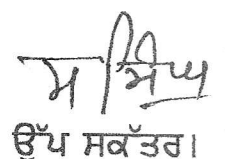 ਸਿੰਘ
ਉੱਪ ਸਕੱਤਰ।